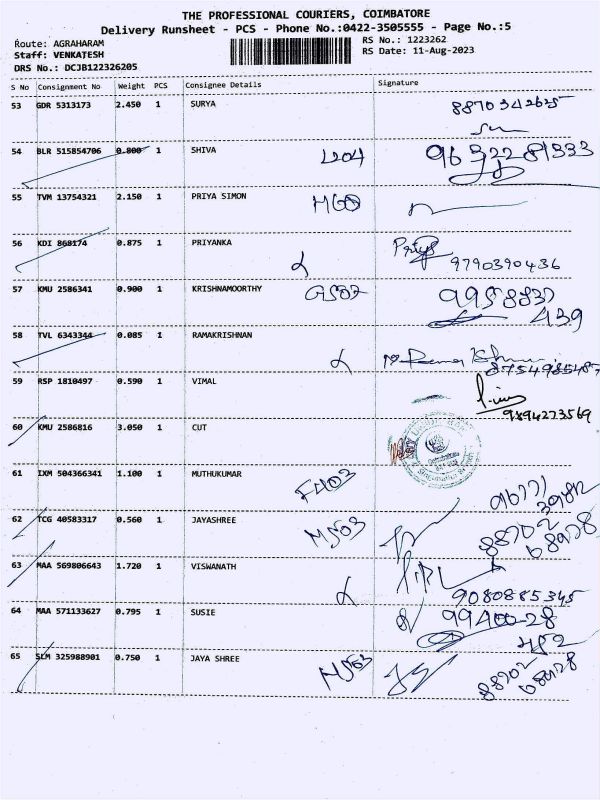 THE PROFESSIONAL COURIERS, COIMBATORE
Delivery Runsheet - PCS - Phone No.:0422-3505555 - Page No.:5
Route: AGRAHARAM
RS No.: 1223262
Staff: VENKATESH
RS Date: 11-Aug-2023
DRS No.: DCJB122326205
S No Consignment No Weight PCS Consignee Details Signature
53 GDR 5313173 2.450 1 SURYA 8870342625
54 BLR 515854706 0.800 1 SHIVA L204 9632281333
55 TVM 13754321 2.150 1 PRIYA SIMON
56 KDI 868174 0.875 1 PRIYANKA Priya
9790390436
57 KMU 2586341 0.900 1 KRISHNAMOORTHY G507 9958837
439
58 TVL 6343344 0.085 1 RAMAKRISHNAN
8754985487
59 RSP 1810497 0.590 1 VIMAL
9894273569
60 KMU 2586816 3.050 1 CUT
61 IXM 504366341 1.100 1 MUTHUKUMAR F403 96777
39812
62 TCG 40583317 0.560 1 JAYASHREE M503 88702
68978
63 MAA 569806643 1.720 1 VISWANATH
9080885345
64 MAA 571133627 0.795 1 SUSIE 99400-28
482
65 SLM 325988901 0.750 1 JAYA SHREE M503 88702
68978